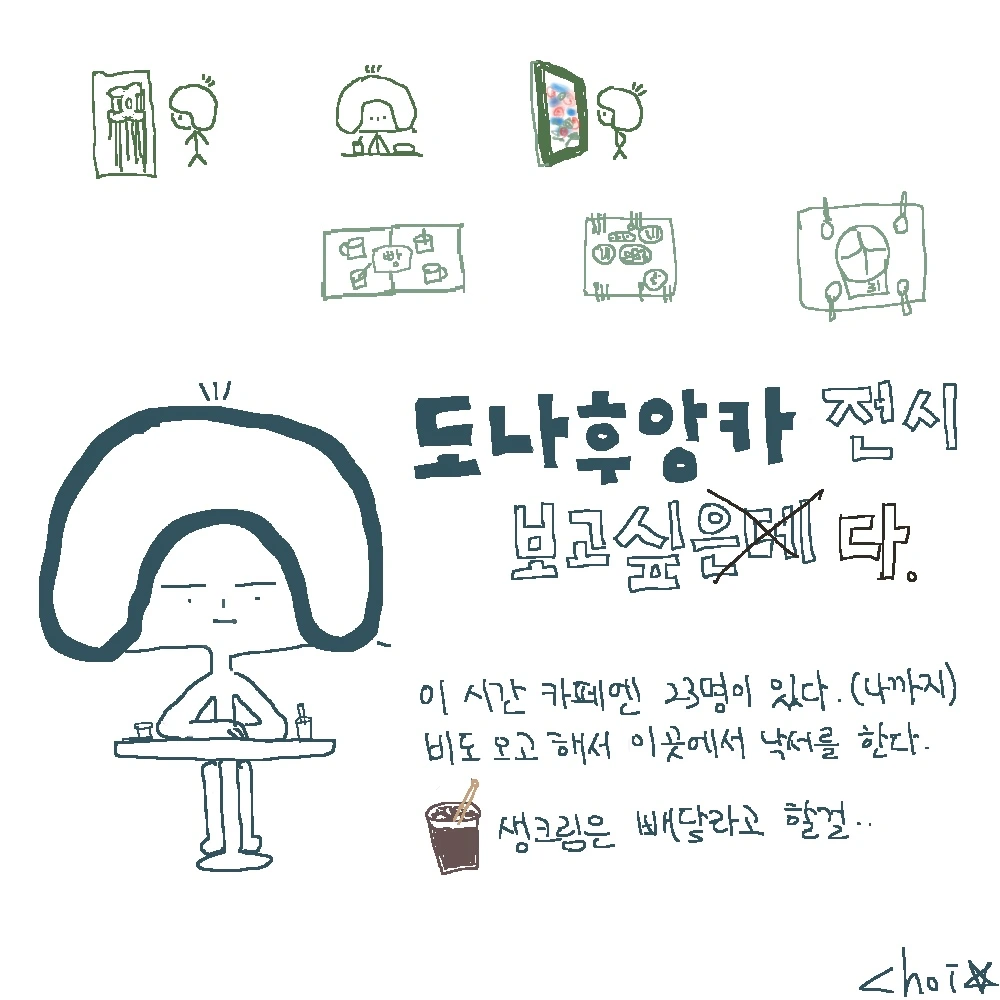 빵
도나후앙카 전시
보고싶은데 다.
이 시간 카페엔 23명이 있다.(나까지)
비도 오고 해서 이곳에서 낙서를 한다.
생크림은 빼달라고 할걸..
choi